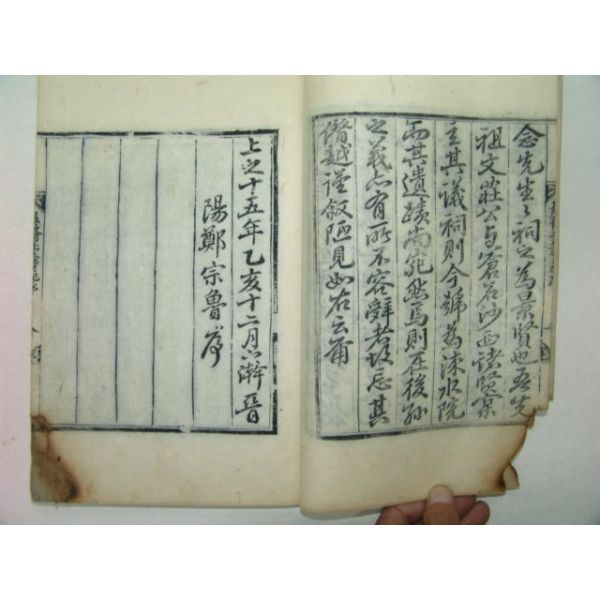 念先生之祠之為景賢也吾先
祖文莊公与蒼石沙西諸賢実
主其議祠則今號為涑水院
而其遺蹟尚宛然焉則在後孫
之義亦有所不容辭者故忘其
僭越謹敘陋見如右云爾
上之十五年乙亥十二月下澣晉
陽鄭宗魯序